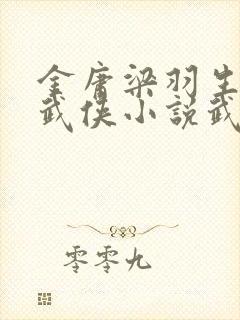 金庸梁羽生
武侠小説武
零零九